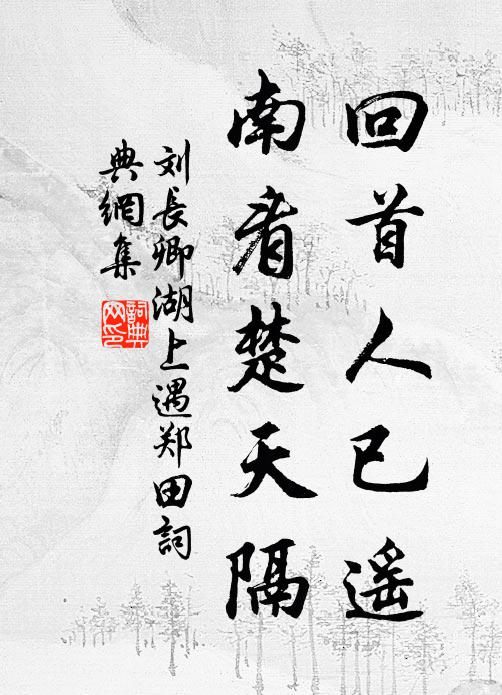 回首人已遥
南看楚天隔
刘长卿湖上遇郑田詞
典網集
詞典
网印